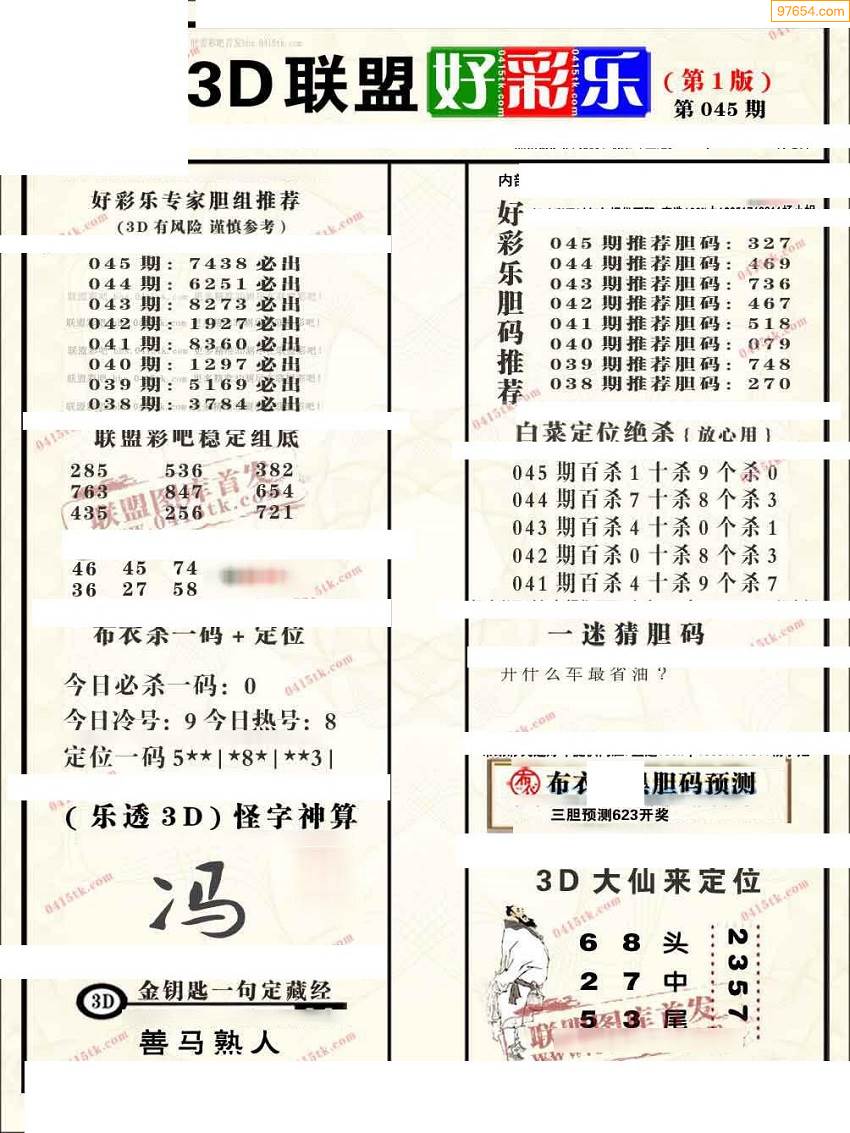 97654.com
3D联盟好彩乐
(第1版)
第 045 期
好彩乐专家胆组推荐
(3D有风险 谨慎参考)
045 期: 7438 必出
044 期: 6251 必出
043 期: 8273 必出
042 期: 1927 必出
041 期: 8360 必出
040 期: 1297 必出
039 期: 5169 必出
038 期: 3784 必出
联盟彩吧稳定组底
285 536 382
763 847 654
435 256 721
46 45 74
36 27 58
布衣杀一码+定位
今日必杀一码: 0
今日冷号: 9 今日热号: 8
定位一码 5**|*8*|**3|
(乐透3D)怪字神算
冯
3D 金钥匙一句定藏经
善马熟人
好彩乐胆码推荐
045 期推荐胆码: 327
044 期推荐胆码: 469
043 期推荐胆码: 736
042 期推荐胆码: 467
041 期推荐胆码: 518
040 期推荐胆码: 079
039 期推荐胆码: 748
038 期推荐胆码: 270
白菜定位绝杀{放心用}
045 期百杀1十杀9个杀0
044 期百杀7十杀8个杀3
043 期百杀4十杀0个杀1
042 期百杀0十杀8个杀3
041 期百杀4十杀9个杀7
一迷猜胆码
开什么车最省油?
布衣 胆码预测
三胆预测623开奖
3D 大仙来定位
6 8 头
2 7 中
5 3 尾
2357
联盟图库首发
0415tk.com